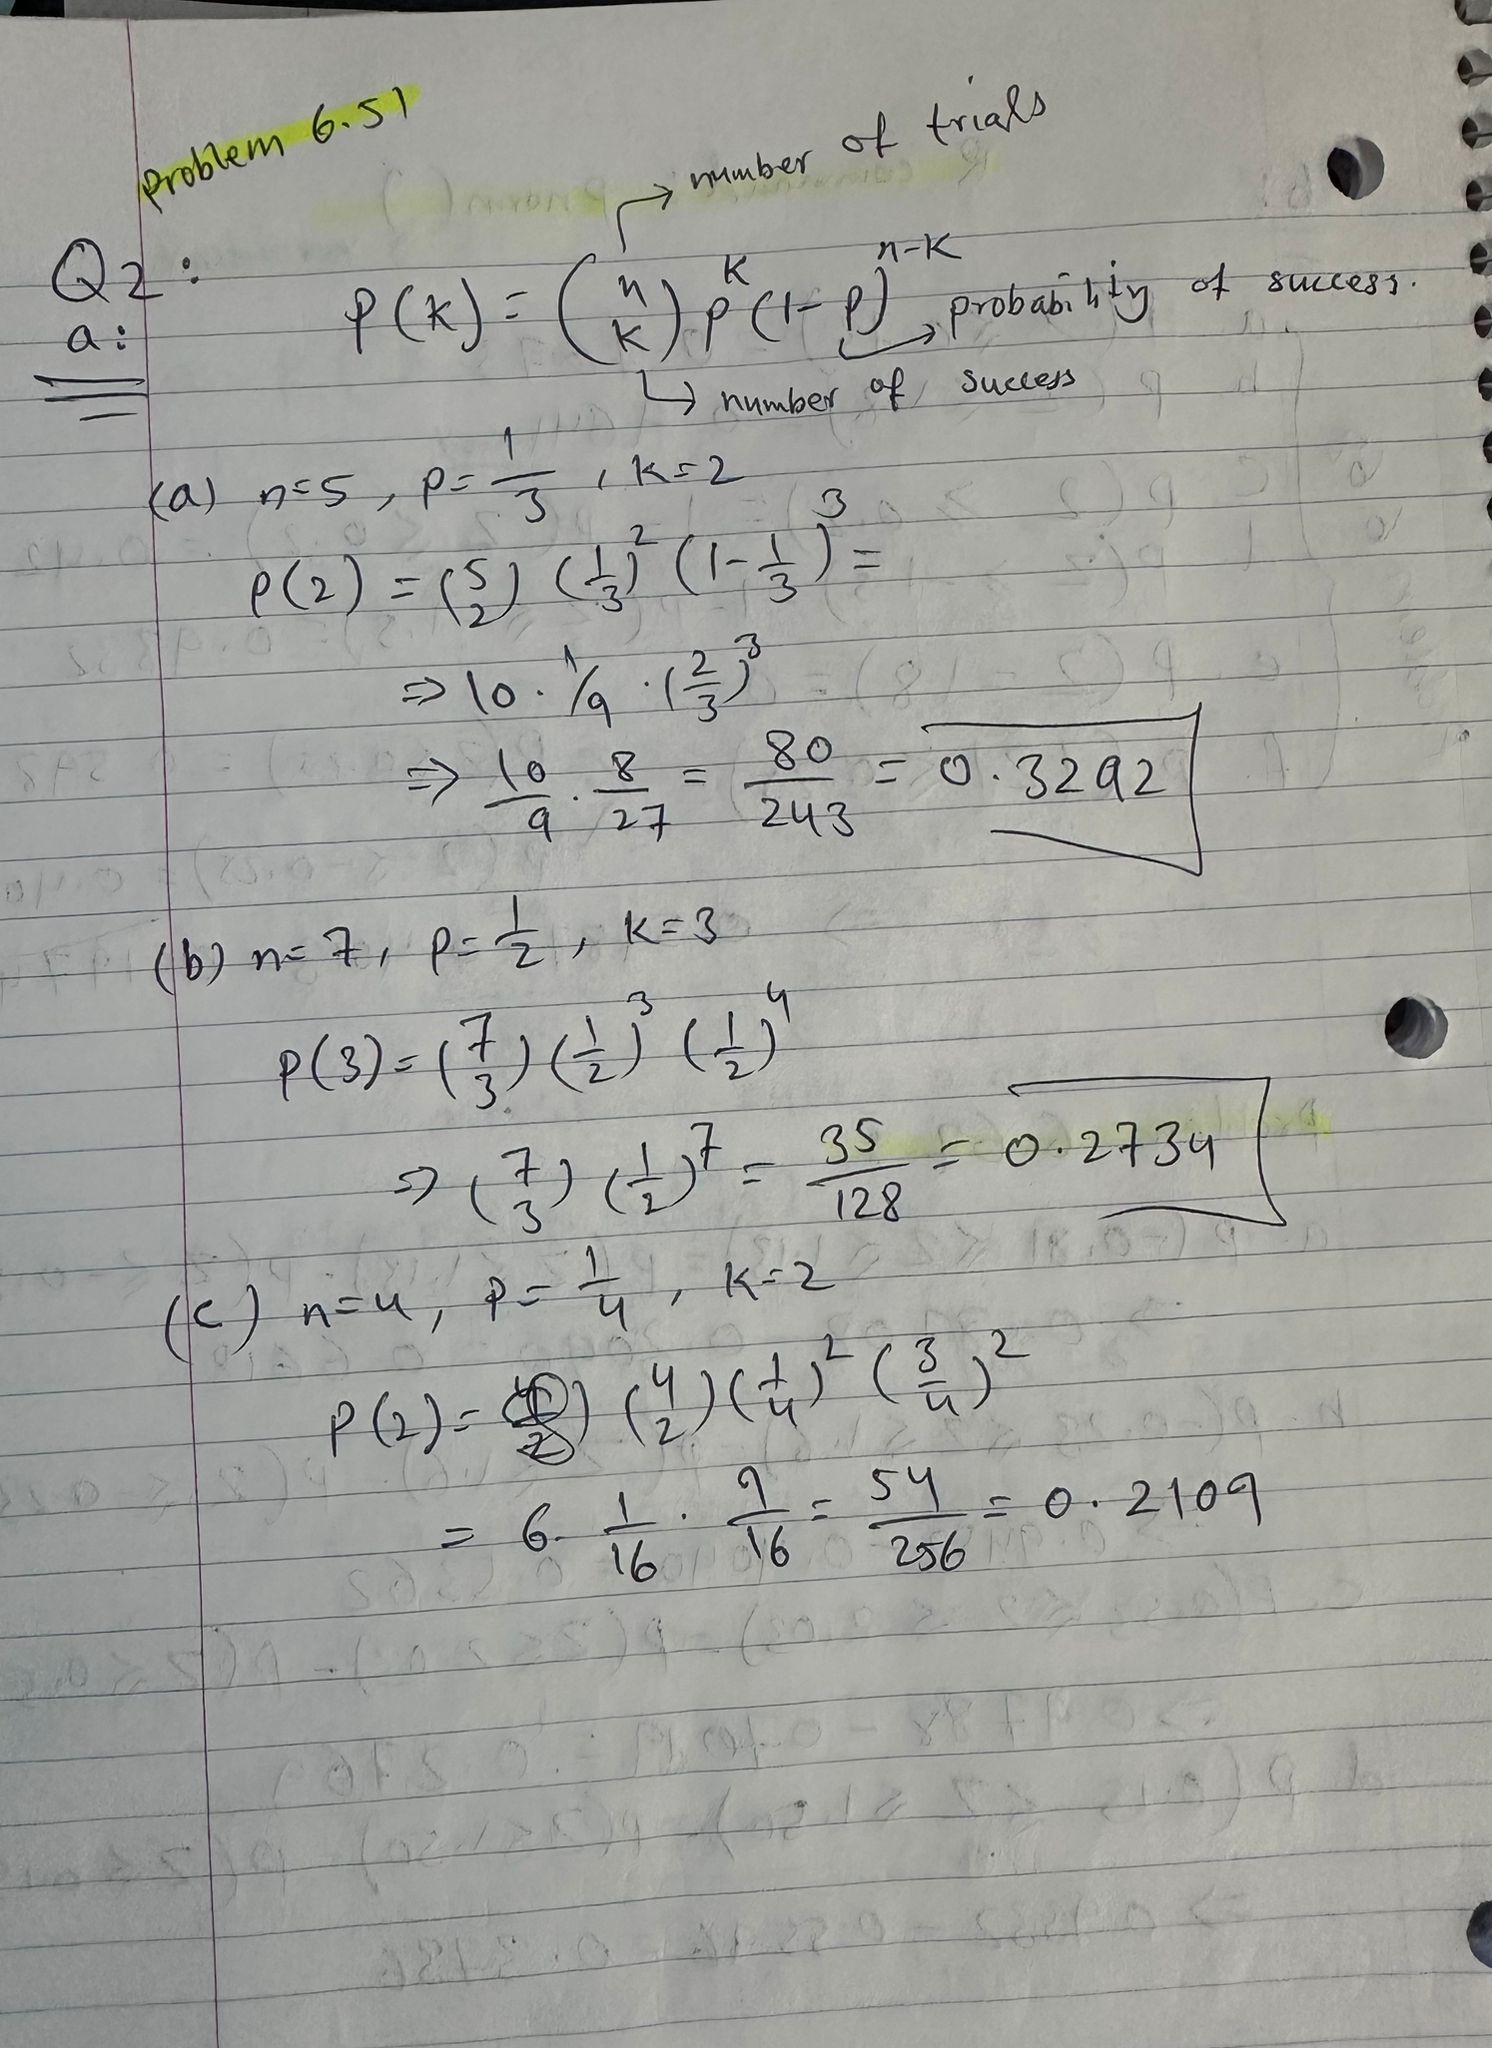 Problem 6.51
number of trials
Q2:
a:
P(k) = (n k) p^k (1-p)^n-k
probability of success.
number of success
(a) n=5, p=1/3, k=2
P(2) = (5 2) (1/3)^2 (1-1/3)^3 =
⇒ 10 · 1/9 · (2/3)^3
⇒ 10/9 · 8/27 = 80/243 = 0.3292
(b) n=7, p=1/2, k=3
P(3) = (7 3) (1/2)^3 (1/2)^4
⇒ (7 3) (1/2)^7 = 35/128 = 0.2734
(c) n=4, p=1/4, k=2
P(2) = (4 2) (1/4)^2 (3/4)^2
= 6 · 1/16 · 9/16 = 54/256 = 0.2109